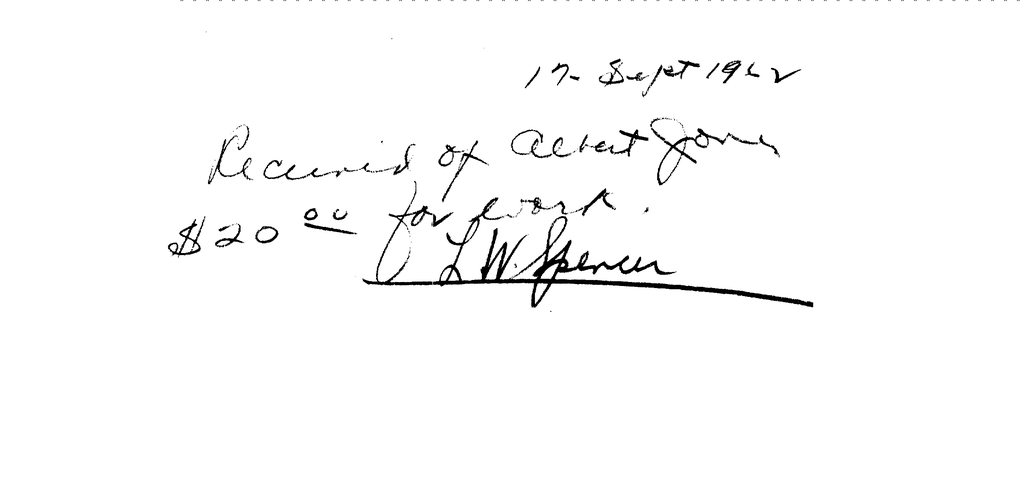 17 - Sept 1962
Received of Albert Jones
$20 00 for work.
L W. Spencer